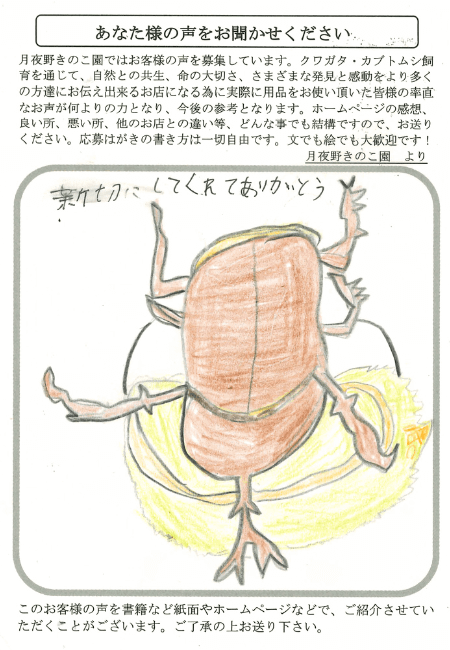 あなた様の声をお聞かせください
月夜野きのこ園ではお客様の声を募集しています。クワガタ・カブトムシ飼
育を通じて、自然との共生、命の大切さ、さまざまな発見と感動をより多く
の方達にお伝え出来るお店になる為に実際に用品をお使い頂いた皆様の率直
なお声が何よりの力となり、今後の参考となります。ホームページの感想、
良い所、悪い所、他のお店との違い等、どんな事でも結構ですので、お送り
ください。応募はがきの書き方は一切自由です。文でも絵でも大歓迎です！
月夜野きのこ園　より
新切にしてくれてありがとう
このお客様の声を書籍など紙面やホームページなどで、ご紹介させてい
ただくことがございます。ご了承の上お送り下さい。